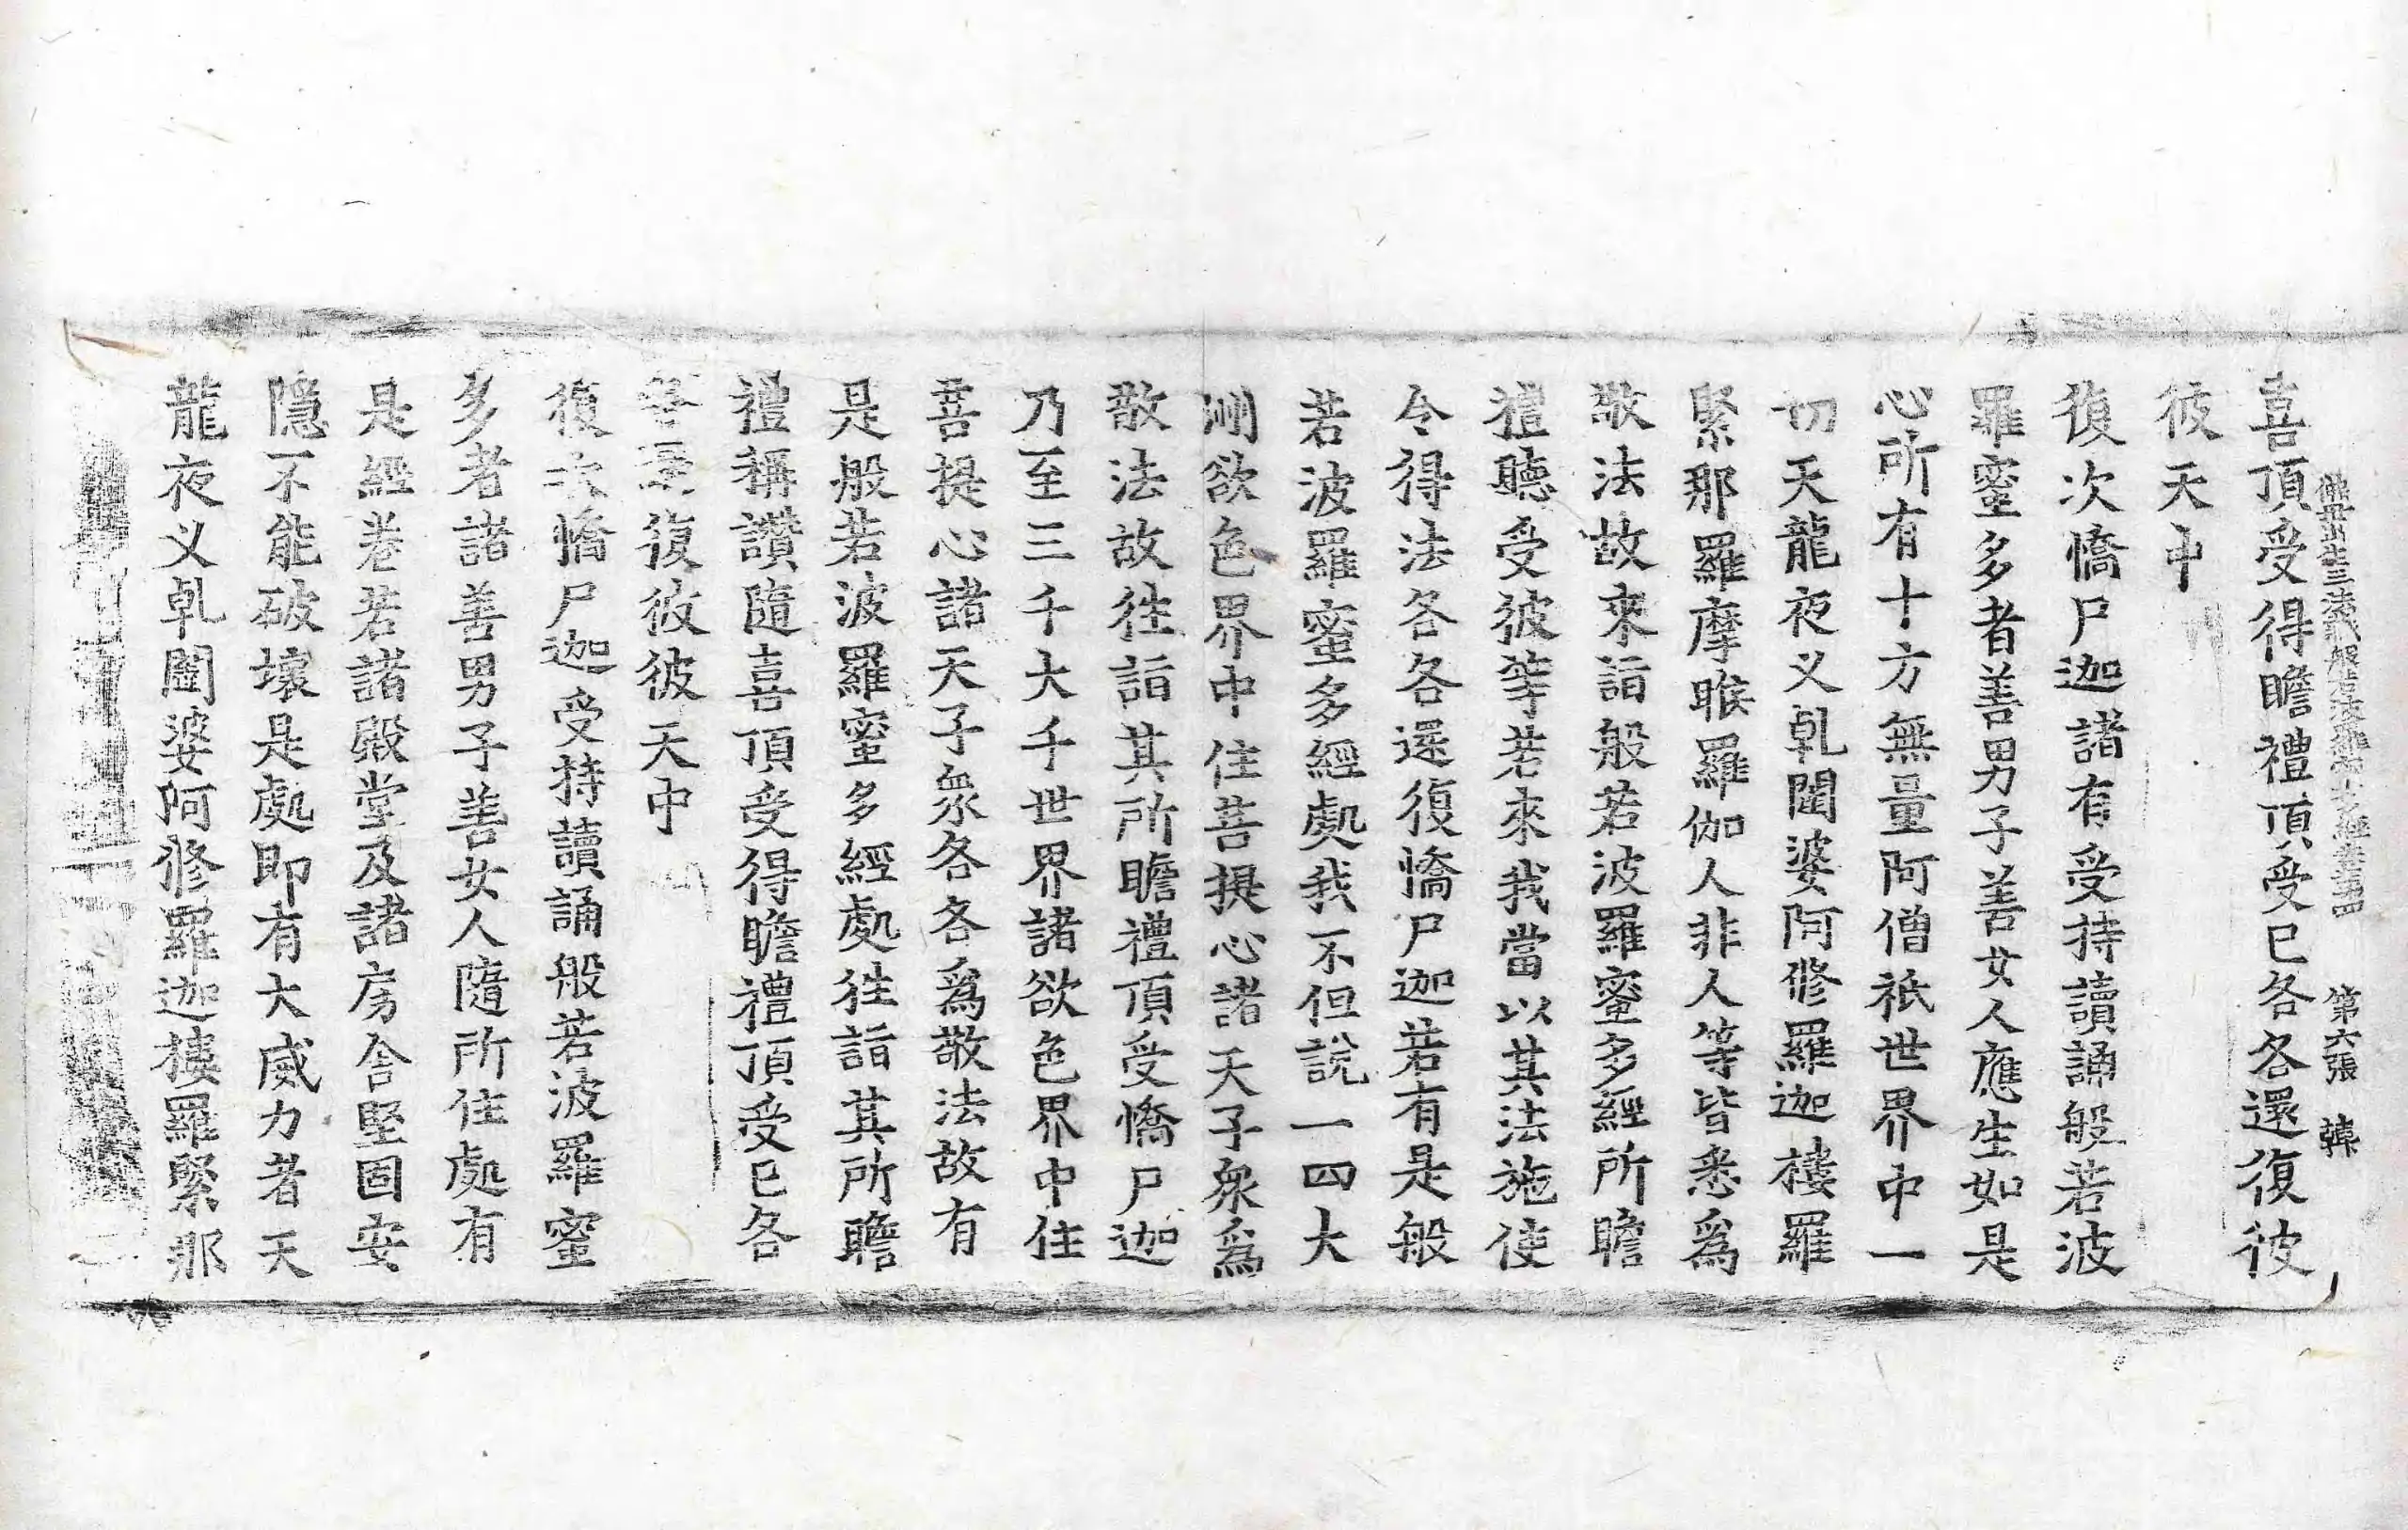 佛母出生三法藏般若波羅蜜多經卷第四 第六張 韓
喜頂受得瞻禮頂受已各各還復彼
彼天中
復次憍尸迦諸有受持讀誦般若波
羅蜜多者善男子善女人應生如是
心所有十方無量阿僧祇世界中一
切天龍夜叉乹闥婆阿修羅迦樓羅
緊那羅摩睺羅伽人非人等皆悉爲
敬法故來詣般若波羅蜜多經所瞻
禮聽受彼等若來我當以其法施使
令得法各各還復憍尸迦若有是般
若波羅蜜多經處我不但說一四大
洲欲色界中住菩提心諸天子衆爲
敬法故徃詣其所瞻禮頂受憍尸迦
乃至三千大千世界諸欲色界中住
菩提心諸天子衆各各爲敬法故有
是般若波羅蜜多經處徃詣其所瞻
禮稱讚隨喜頂受得瞻禮頂受已各
各還復彼彼天中
復次憍尸迦受持讀誦般若波羅蜜
多者諸善男子善女人隨所住處有
是經卷若諸殿堂及諸房舍堅固安
隱不能破壞是處即有大威力者天
龍夜叉乹闥婆阿修羅迦樓羅緊那